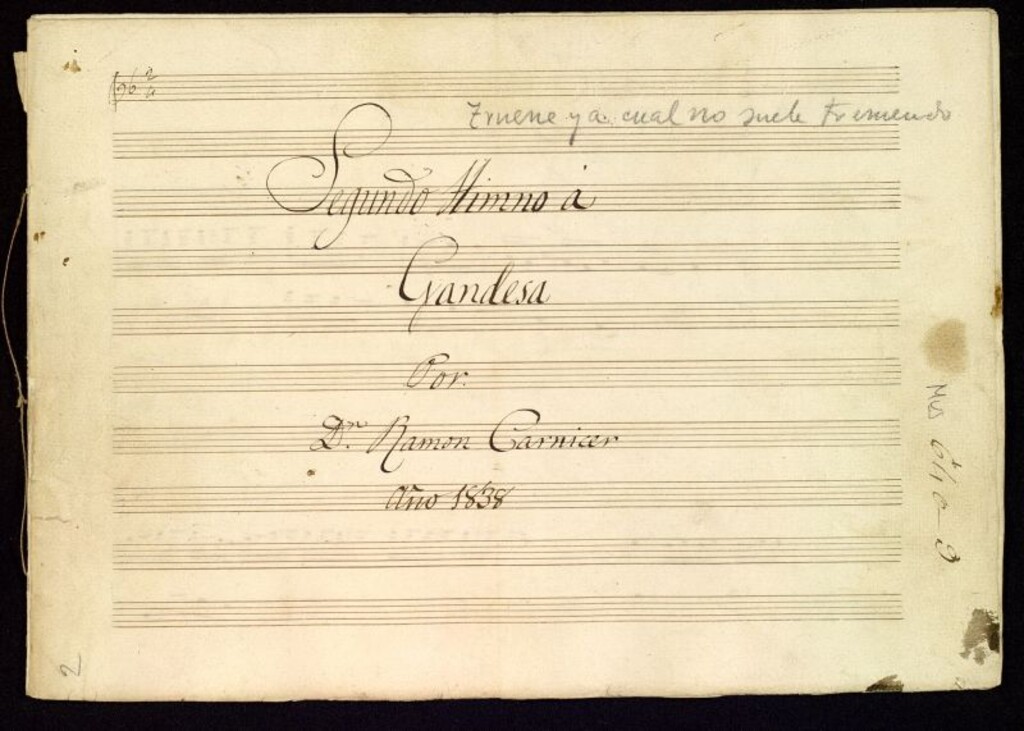 Truene ya cual no suele tremendo
Segundo Himno á
Gandesa
Por
Dn Ramon Carnicer
Año 1838
2